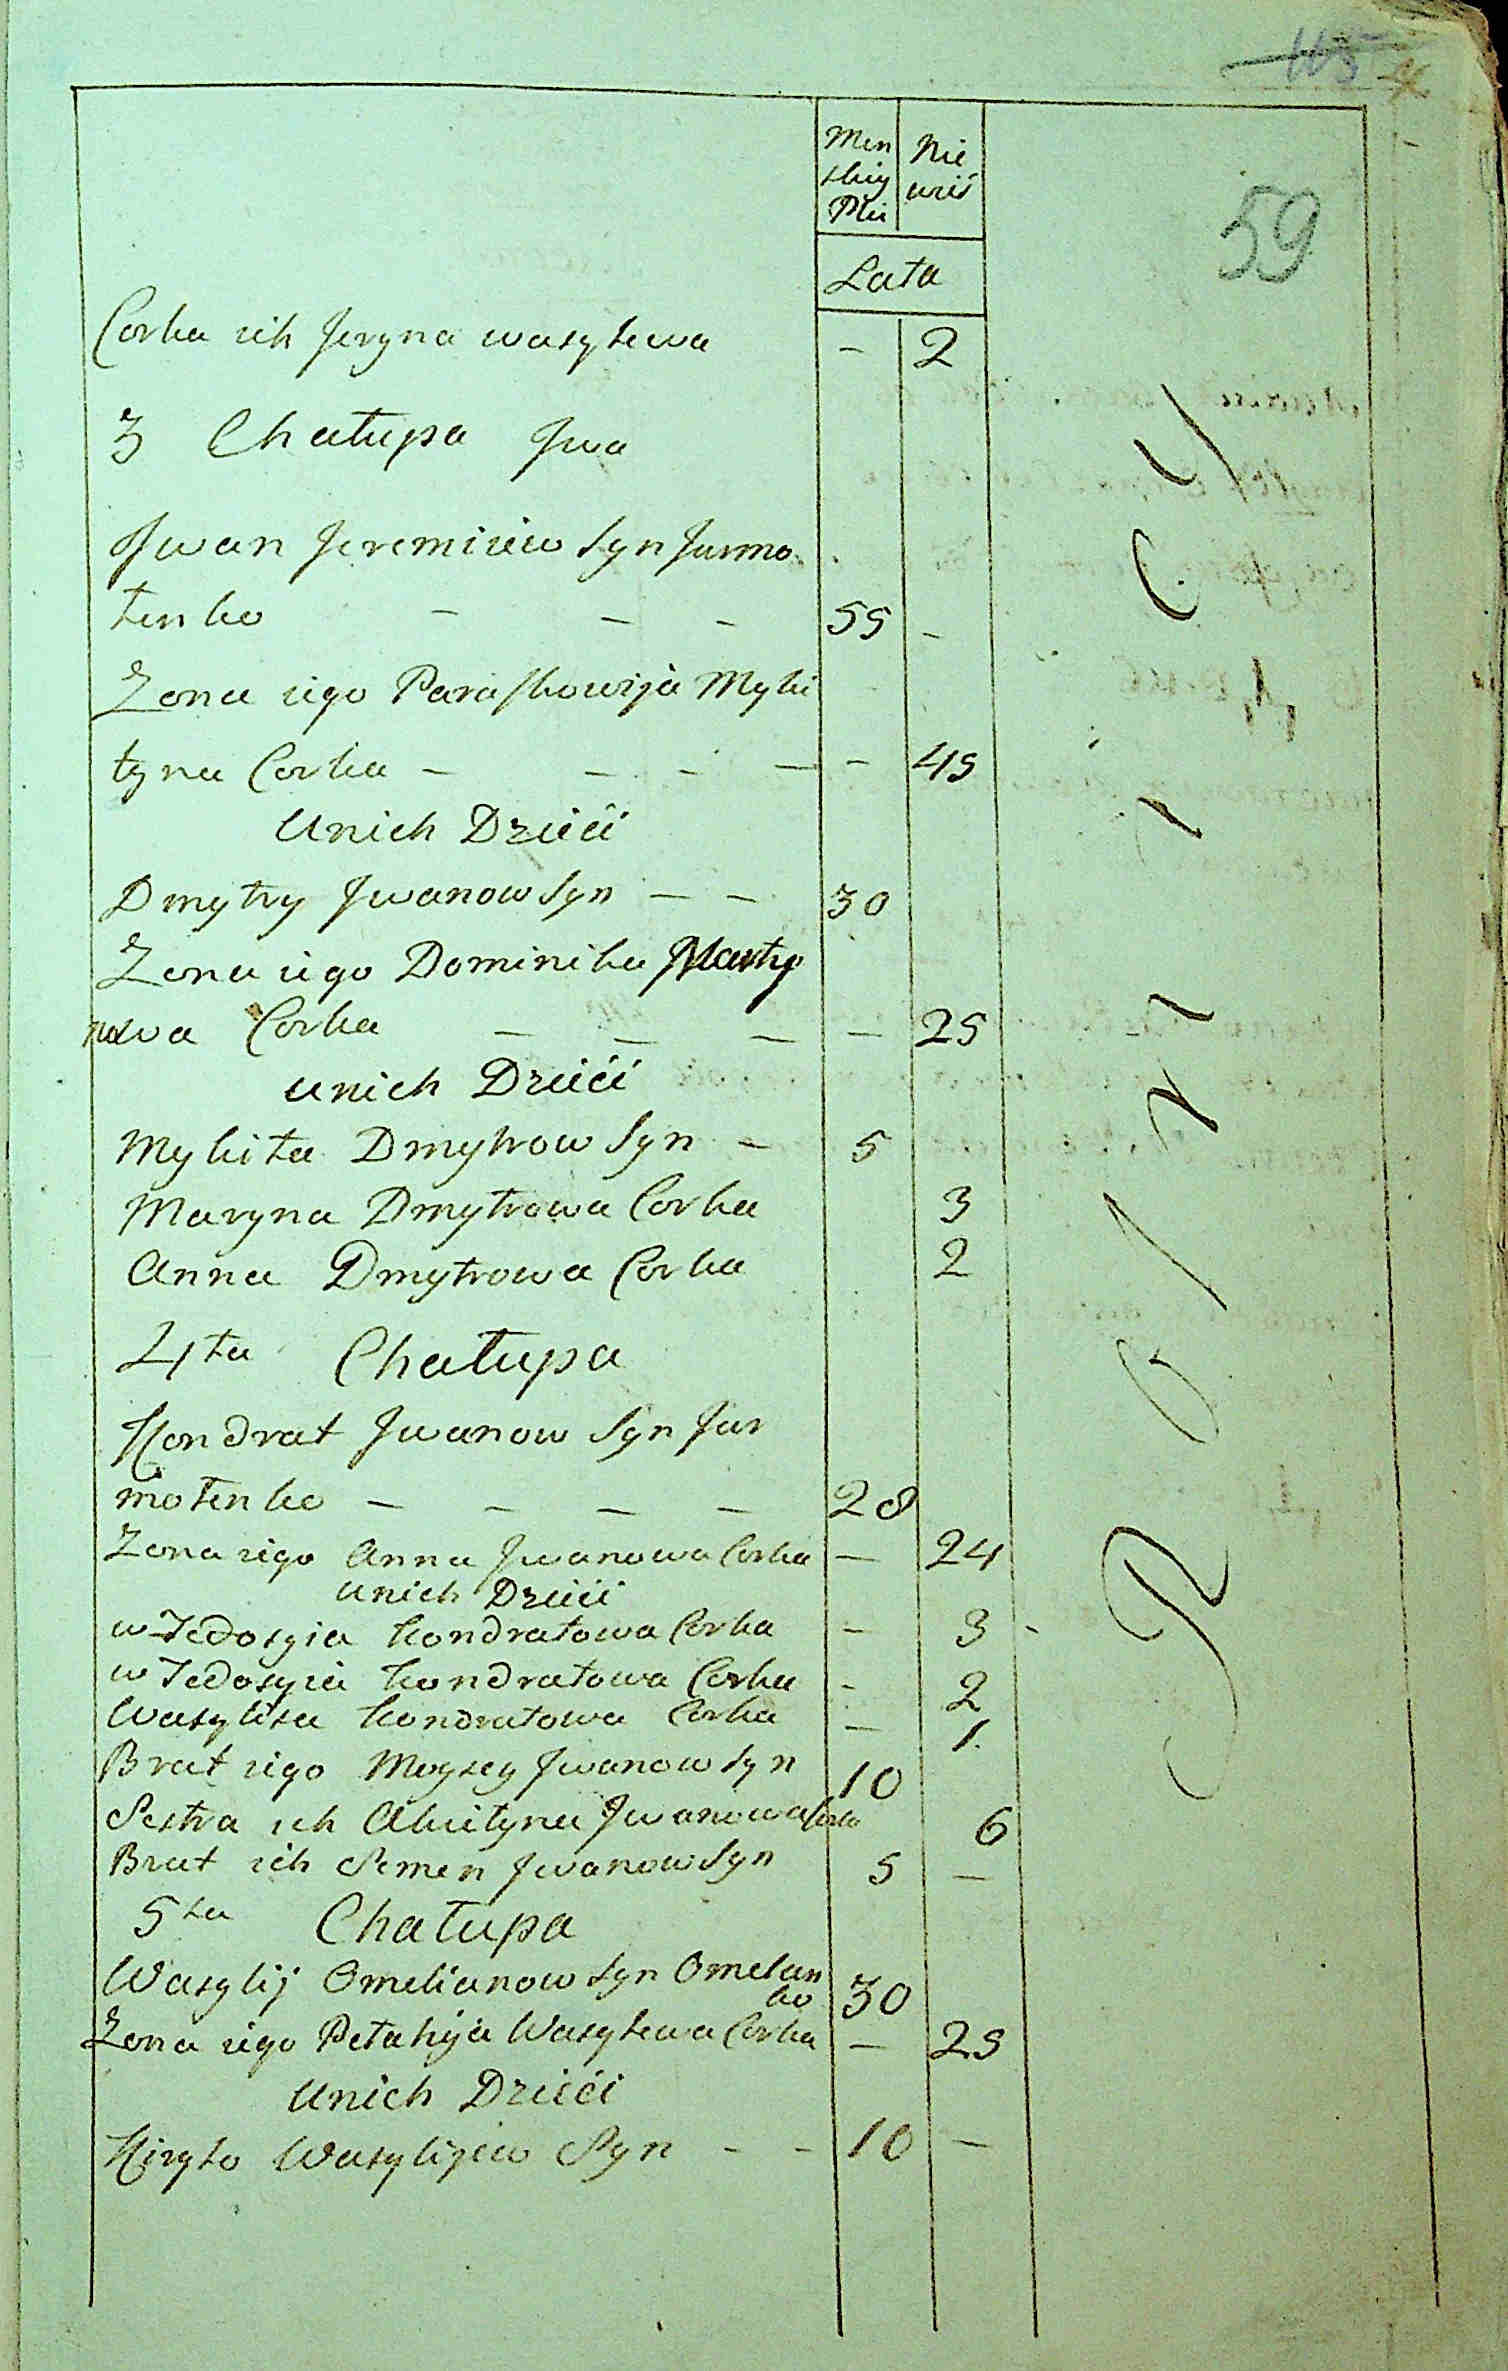 115
59
Men Nie
skiey wieś
Płci
Lata
Corka ich Jeryna wasylewa - 2
3 Chałupa Jwa
Jwan Jeremiiew Syn Jarmo
łenko - - - 55 -
Zona iego Paraskowija Myki
tyna Corka - - - - - 45
Unich Dzieći
Dmytry Jwanow Syn - - 30
Zona iego Dominika Marty
nowa Corka - - - - 25
unich Dzieći
Mykita Dmytrow Syn - 5
Maryna Dmytrowa Corka 3
Anna Dmytrowa Corka 2
4ta Chałupa
Kondrat Jwanow Syn Jar
mołenko - - - - 28
Zona iego Anna Jwanowa Corka - 24
unich Dzieći
wTedosyia Kondratowa Corka - 3 -
wTedosyia Kondratowa Corka - 2
Wasylisa Kondratowa Corka - 1.
Brat iego Moysey Jwanow Syn 10
Sestra ich Akilyna Jwanowa Corka 6
Brat ich Semen Jwanow Syn 5 -
5ta Chałupa
Wasylij Omelianow Syn Omelan
ko 30
Zona iego Petahija Wasylewa Corka - 25
Unich Dzieći
Kiryło Wasylijew Syn - - 10 -